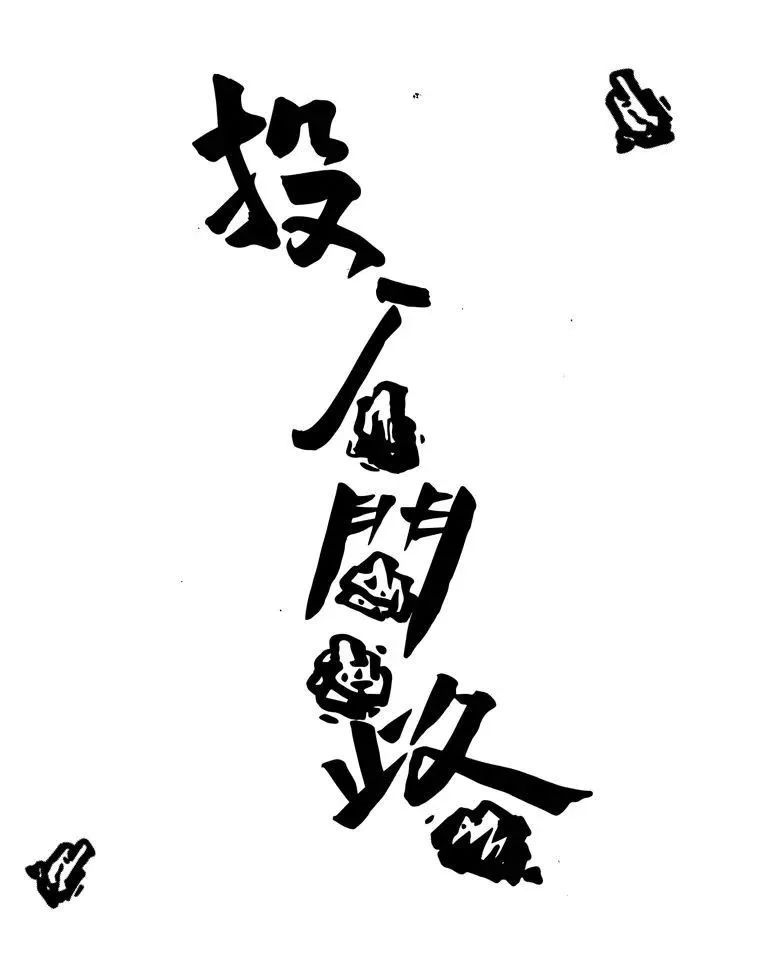 投石問路